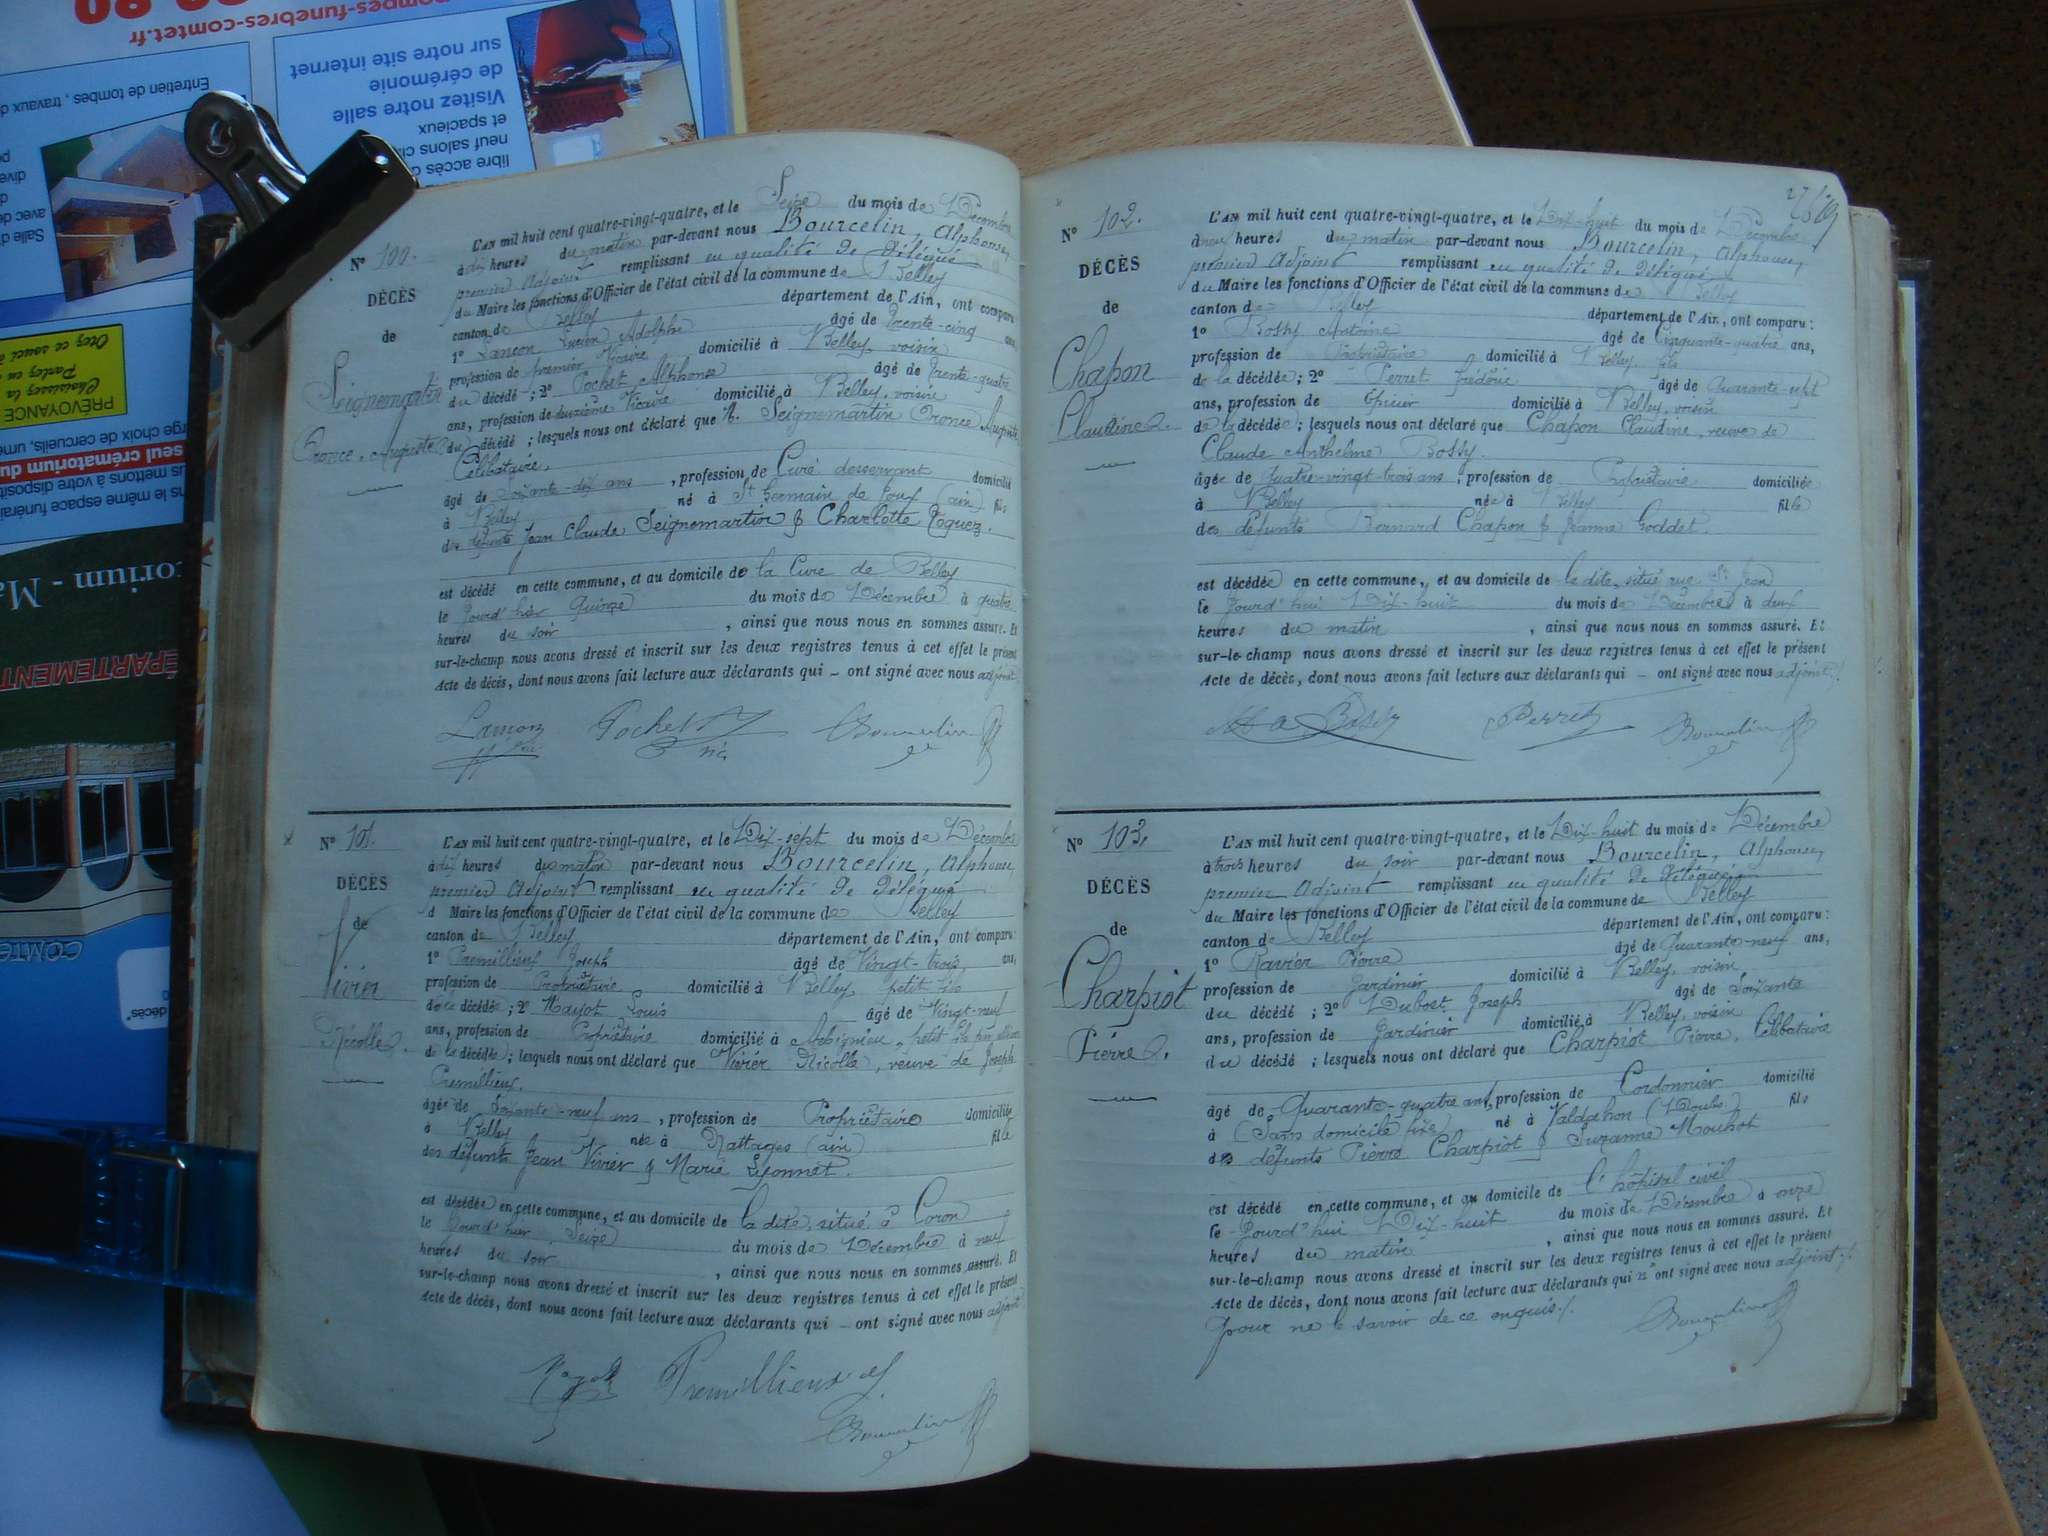 N° 100.
DÉCÈS
de
Seignemartin
Oronce, Auguste
L'AN mil huit cent quatre-vingt-quatre, et le Seize du mois de Décembre
à dix heures du matin par-devant nous Bourcelin, Alphonse,
premier Adjoint remplissant en qualité de délégué
du Maire les fonctions d'Officier de l'état civil de la commune de Belley
canton de Belley département de l'Ain, ont comparu
1° Lançon Lucien Adolphe âgé de trente-cinq ans,
profession de premier Vicaire domicilié à Belley, voisin
du décédé ; 2° Pochet Alphonse âgé de trente-quatre
ans, profession de deuxième Vicaire domicilié à Belley, voisin
du décédé ; lesquels nous ont déclaré que M. Seignemartin Oronce Auguste
Célibataire,
âgé de soixante-dix ans , profession de Curé desservant domicilié
à Belley né à St Germain de Joux (ain) fils
des défunts Jean Claude Seignemartin & Charlotte
est décédé en cette commune, et au domicile de la Cure de Belley
le jourd'hier Quinze du mois de Décembre à quatre
heures du soir , ainsi que nous nous en sommes assuré. Et
sur-le-champ nous avons dressé et inscrit sur les deux registres tenus à cet effet le présent
Acte de décès, dont nous avons fait lecture aux déclarants qui – ont signé avec nous adjoint
Pochet Bourcelin
N° 101.
DÉCÈS
de
Vivier
Nicolle
L'AN mil huit cent quatre-vingt-quatre, et le Dix-sept du mois de Décembre
à dix heures du matin par-devant nous Bourcelin, Alphonse,
premier Adjoint remplissant en qualité de délégué
d Maire les fonctions d'Officier de l'état civil de la commune de Belley
canton de Belley département de l'Ain, ont comparu:
1° Premillieux Joseph âgé de Vingt-trois ans,
profession de Propriétaire domicilié à Belley petit fils
de la décédée ; 2° Mayot Louis âgé de Vingt-neuf
ans, profession de Propriétaire domicilié à Arbignieu, petit fils par alliance
de la décédée ; lesquels nous ont déclaré que Vivier Nicolle, veuve de Joseph
Premillieux.
âgée de Soixante-neuf ans , profession de Propriétaire domiciliée
à Belley née à Nattages (ain) fille
des défunts Jean Vivier & Marie Lyonnet.
est décédée en cette commune, et au domicile de la dite, situé à Coron
le jourd'hier Seize du mois de Décembre à neuf
heures du soir , ainsi que nous nous en sommes assuré. Et
sur-le-champ nous avons dressé et inscrit sur les deux registres tenus à cet effet le présent
Acte de décès, dont nous avons fait lecture aux déclarants qui – ont signé avec nous adjoint
Mayot Premillieux
Bourcelin
N° 102.
DÉCÈS
de
Chapon
Claudine
L'AN mil huit cent quatre-vingt-quatre, et le Dix-huit du mois de Décembre
à neuf heures du matin par-devant nous Bourcelin, Alphonse,
premier Adjoint remplissant en qualité de délégué
du Maire les fonctions d'Officier de l'état civil de la commune de Belley
canton de Belley département de l'Ain, ont comparu :
1° Bossy Antoine âgé de Cinquante-quatre ans,
profession de Propriétaire domicilié à Belley fils
de la décédée ; 2° Perret Frédéric âgé de Quarante-sept
ans, profession de Epicier domicilié à Belley, voisin
de la décédée ; lesquels nous ont déclaré que Chapon Claudine, veuve de
Claude Anthelme Bossy.
âgée de Quatre-vingt-trois ans , profession de Propriétaire domiciliée
à Belley née à Belley fille
des défunts Bernard Chapon & Jeanne Goddet.
est décédée en cette commune, et au domicile de la dite, situé rue St Jean
le jourd'hui Dix-huit du mois de Décembre à deux
heures du matin , ainsi que nous nous en sommes assuré. Et
sur-le-champ nous avons dressé et inscrit sur les deux registres tenus à cet effet le présent
Acte de décès, dont nous avons fait lecture aux déclarants qui – ont signé avec nous adjoint ./.
Bossy Perret Bourcelin
N° 103.
DÉCÈS
de
Charpiot
Pierre
L'AN mil huit cent quatre-vingt-quatre, et le Dix-huit du mois de Décembre
à trois heures du soir par-devant nous Bourcelin, Alphonse,
premier Adjoint remplissant en qualité de délégué
du Maire les fonctions d'Officier de l'état civil de la commune de Belley
canton de Belley département de l'Ain, ont comparu :
1° Ravier Pierre âgé de Quarante-neuf ans,
profession de Jardinier domicilié à Belley, voisin
du décédé ; 2° Dubost Joseph âgé de Soixante
ans, profession de Jardinier domicilié à Belley, voisin
du décédé ; lesquels nous ont déclaré que Charpiot Pierre, Célibataire
âgé de Quarante-quatre ans, profession de Cordonnier domicilié
à (Sans domicile fixe) né à Valdahon (Doubs) fils
des défunts Pierre Charpiot & Suzanne Mouhot
est décédé en cette commune, et au domicile de l'hôpital civil
le jourd'hui Dix-huit du mois de Décembre à onze
heures du matin , ainsi que nous nous en sommes assuré. Et
sur-le-champ nous avons dressé et inscrit sur les deux registres tenus à cet effet le présent
Acte de décès, dont nous avons fait lecture aux déclarants qui n'ont signé avec nous adjoint ./.
pour ne le savoir de ce enquis ./.
Bourcelin
pompes-funebres-comtet.fr
Visitez notre salle
de cérémonie
sur notre site internet
et spacieux
neuf salons
libre accès
Entretien de tombes, travaux d
PRÉVOYANCE
Choisissez la
Partez en
Otez ce souci
seul crématorium du